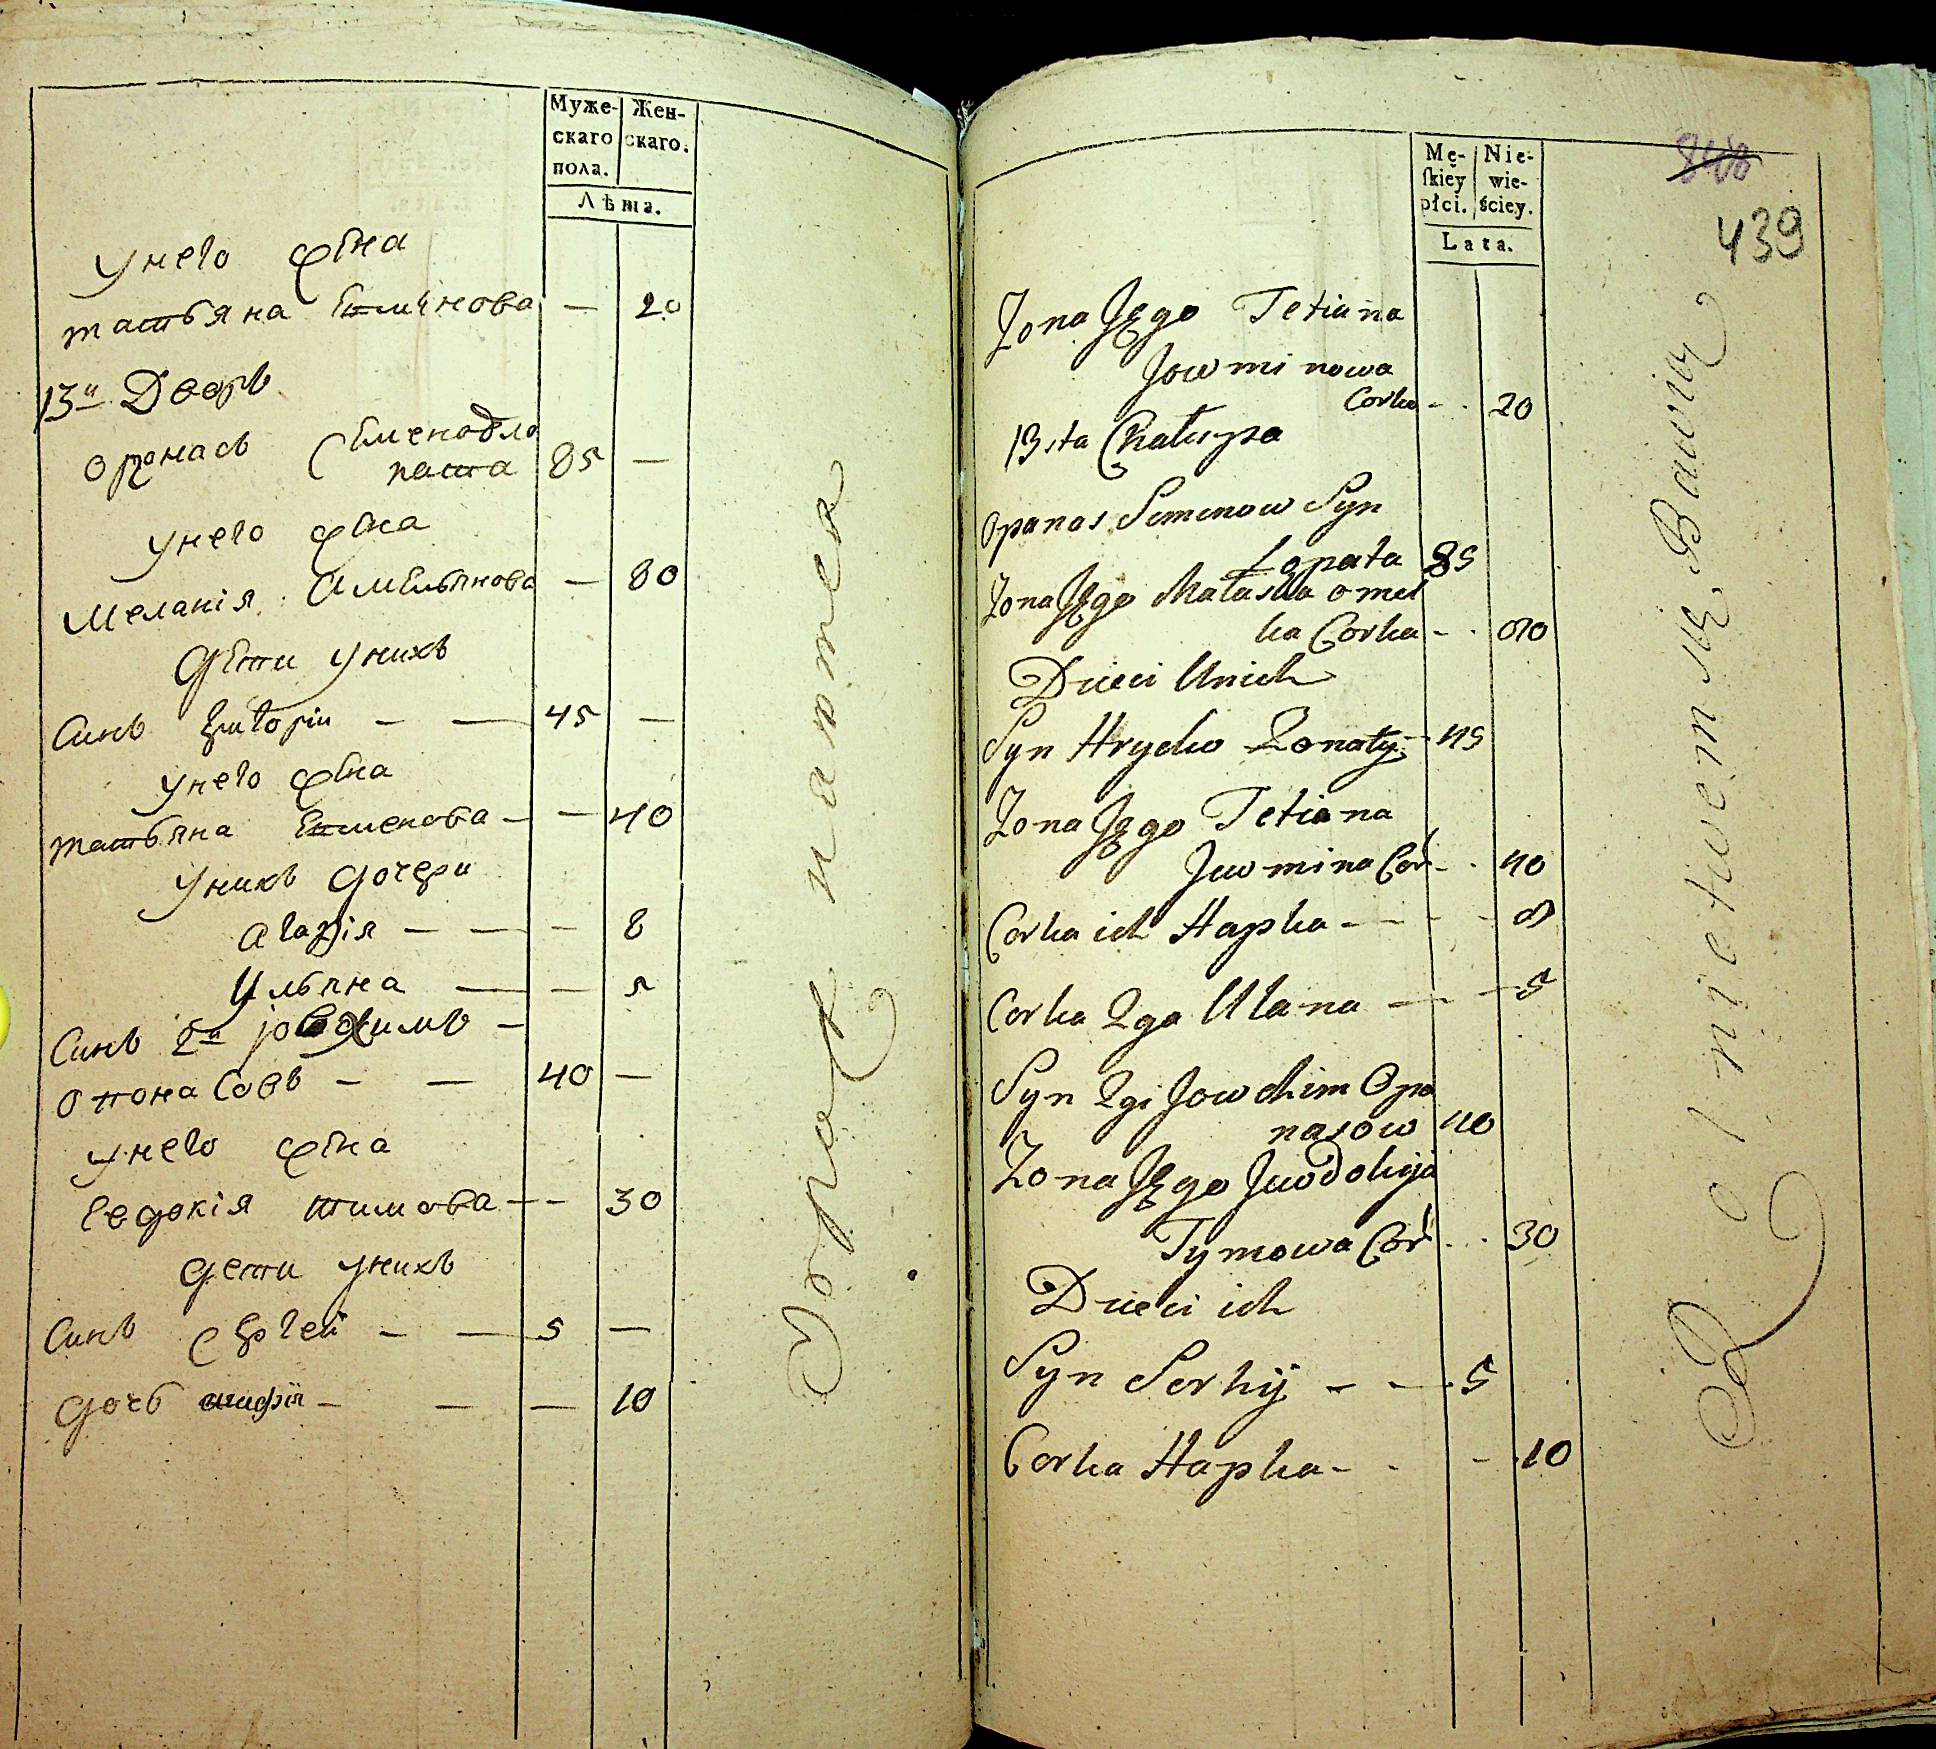 Муже-
скаго
пола.
Жен-
скаго.
Лѣта.
унего жѣна
татьяна Евменова — 20
13й Дворъ
опонасъ Сѣмено в ло
пата 85 —
унего жѣна
Меланія Омельянова — 80
дѣти унихъ
Синъ Григорiи — — 45 —
унего жѣна
татьяна Евменова — — 40
унихъ дочери
агафія — — — 8
ульяна — — 5
Синъ 2й Iовхимъ —
опона Совъ — — 40 —
унего жѣна
Евдокія тимова — — 30
дети унихъ
Синъ Сергей — — 5 —
дочь — — — 10
Mę-
skiey
płci.
Nie-
wie-
ściey.
Lata.
848
439
Zona Jęgo Tetiana
Jowminowa
Corka - . 20
13sta Chałupa
Opanas Semenow Syn
Łopata 85
Zona Jęgo Małaszka omel
ka Corka - . 80
Dzieci Unich
Syn Hryćko Zonaty - 45
Zona Jęgo Tetiana
Juwmina Cor - . 40
Corka ich Hapka - - - - 8
Corka 2ga Ulana — — 5
Syn 2gi Jowchim Opa
nasow 40
Zona Jęgo Juwdokija
Tymowa Cor . . . 30
Dzieci ich
Syn Serhij - — . 5
Corka Hapka - . - . 10
Rolnictwem się Bawią